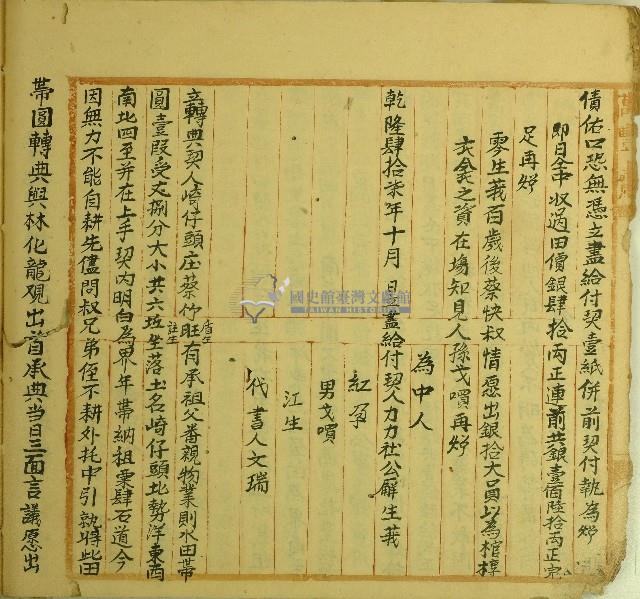 債佑口恐無憑立盡給付契壹紙併前契付執為炤
即日仝中収過田價銀肆拾丙正連前共銀壹佰陸拾丙正完
足再炤
零生莪百歲後蔡快叔情愿出銀拾大員以為棺椁
衣衾之資在塲知見人孫戈嘪再炤
為中人
乾隆肆拾柒年十月 日盡給付契人力力社公廨生莪
紅孕
男戈嘪
江生
代書人文瑞
立轉典契人崎仔頭庄蔡竹旺有承祖父番親物業則水田帶
圓壹叚受丈捌分大小共六坵坐落土名崎仔頭北勢洋東西
南北四至并在上手契內明白為界年帶納祖粟肆石道今
因無力不能自耕先儘問叔兄弟侄不耕外托中引就將此田
帶圓轉典與林化龍覌出首承典當日三面言議愿出
國史館臺灣文獻館
TAIWAN HISTORICA